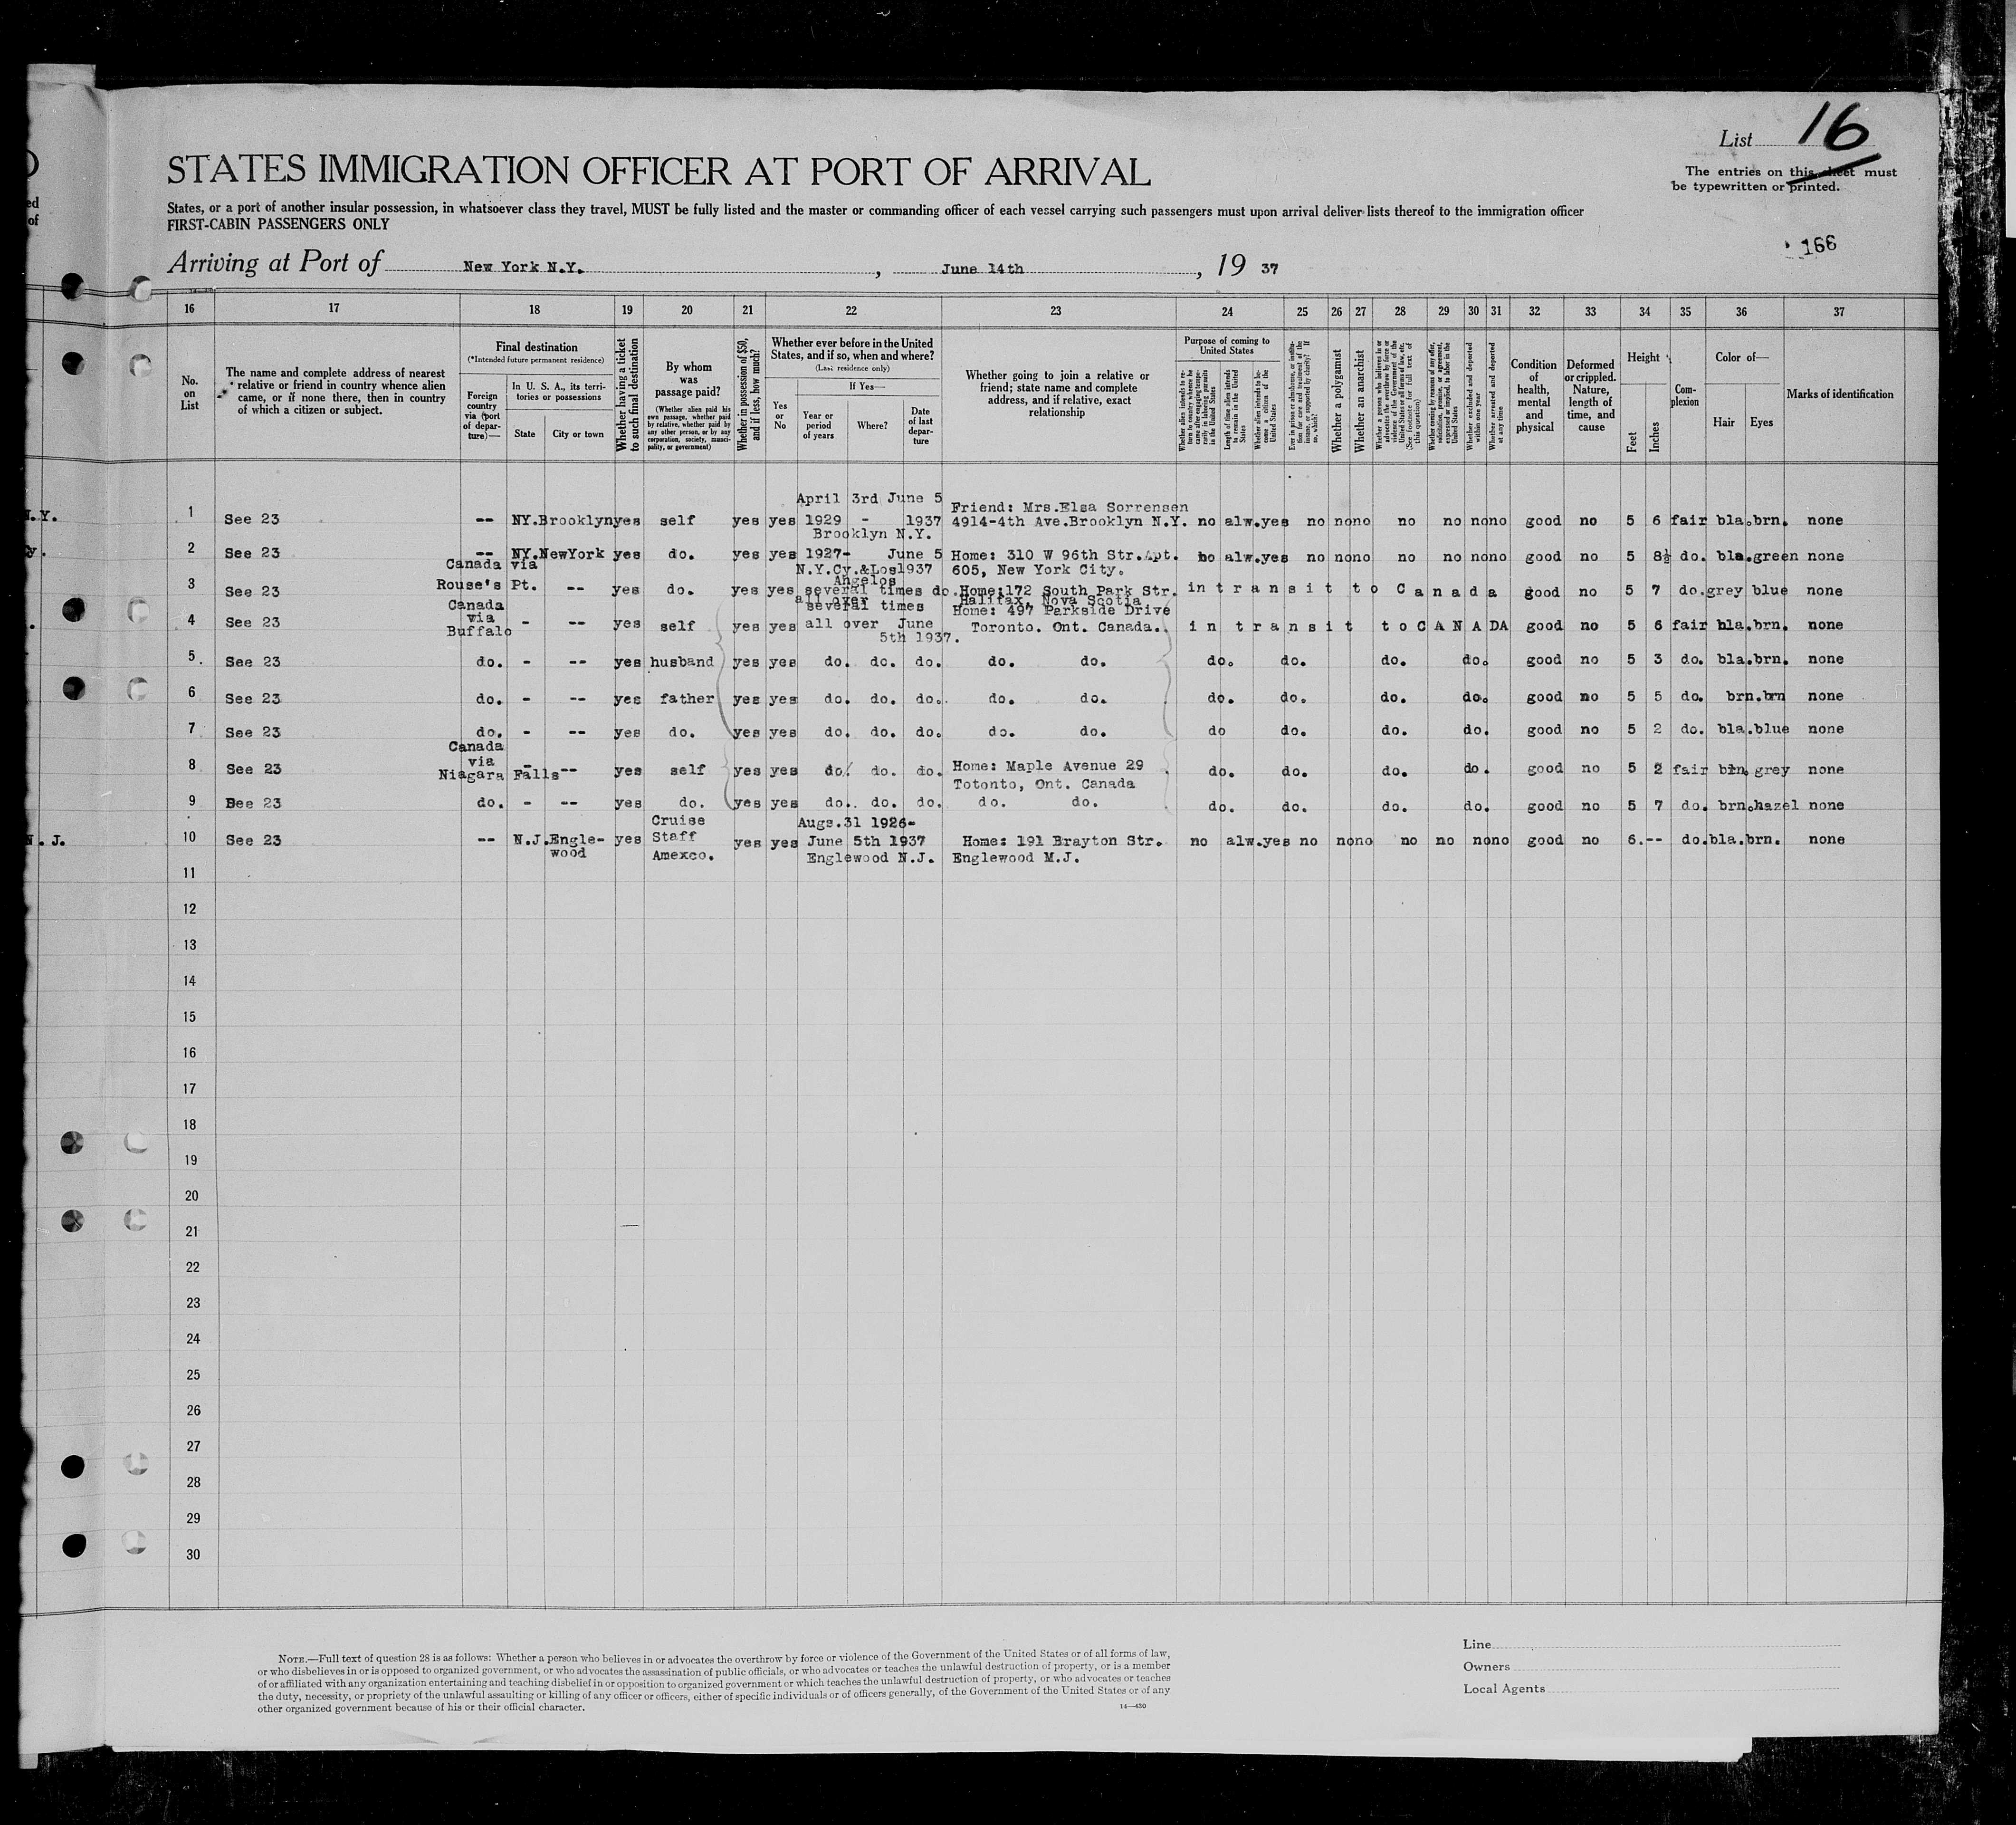 List 16
The entries on this sheet must
be typewritten or printed.
STATES IMMIGRATION OFFICER AT PORT OF ARRIVAL
States, or a port of another insular possession, in whatsoever class they travel, MUST be fully listed and the master or commanding officer of each vessel carrying such passengers must upon arrival deliver lists thereof to the immigration officer
FIRST-CABIN PASSENGERS ONLY
166
Arriving at Port of New York N.Y. , June 14th , 19 37
16 17 18 19 20 21 22 23 24 25 26 27 28 29 30 31 32 33 34 35 36 37
No. on List
The name and complete address of nearest relative or friend in country whence alien came, or if none there, then in country of which a citizen or subject.
Final destination
(*Intended future permanent residence)
Foreign country via (port of departure)—
In U. S. A., its territories or possessions
State
City or town
Whether having a ticket to such final destination
By whom was passage paid?
(Whether alien paid his own passage, whether paid by relative, whether paid by any other person, or by any corporation, society, municipality, or government)
Whether in possession of $50, and if less, how much?
Whether ever before in the United States, and if so, when and where?
(Last residence only)
Yes or No
If Yes—
Year or period of years
Where?
Date of last departure
Whether going to join a relative or friend; state name and complete address, and if relative, exact relationship
Purpose of coming to United States
Whether alien intends to return to country whence he came after engaging temporarily in laboring pursuits in the United States
Length of time alien intends to remain in the United States
Whether alien intends to become a citizen of the United States
Ever in prison or almshouse, or institution for care and treatment of the insane, or supported by charity? If so, which?
Whether a polygamist
Whether an anarchist
Whether a person who believes in or advocates the overthrow by force or violence of the Government of the United States or all forms of law, etc. (See footnote for full text of this question)
Whether coming by reason of any offer, solicitation, promise, or agreement, expressed or implied, to labor in the United States
Whether excluded and deported within one year
Whether arrested and deported at any time
Condition of health, mental and physical
Deformed or crippled. Nature, length of time, and cause
Height
Feet
Inches
Complexion
Color of—
Hair
Eyes
Marks of identification
April 3rd June 5
Friend: Mrs.Elsa Sorrensen
1 See 23 -- NY.Brooklyn yes self yes yes 1929 - 1937 4914-4th Ave.Brooklyn N.Y. no alw.yes no no no no no no no good no 5 6 fair bla.brn. none
Brooklyn N.Y.
2 See 23 -- NY.NewYork yes do. yes yes 1927- June 5 Home: 310 W 96th Str.Apt. no alw.yes no no no no no no no good no 5 8½ do. bla.green none
Canada via N.Y.Cy.&Los 1937 605, New York City.
Angelos
3 See 23 Rouse's Pt. -- yes do. yes yes several times do. Home:172 South Park Str. in transit to Canada good no 5 7 do. grey blue none
all over Halifax, Nova Scotia
Canada several times Home: 497 Parkside Drive
4 See 23 via - -- yes self yes yes all over June Toronto. Ont. Canada.. in transit to CANADA good no 5 6 fair bla.brn. none
Buffalo 5th 1937.
5. See 23 do. - -- yes husband yes yes do. do. do. do. do. do. do. do. do. good no 5 3 do. bla.brn. none
6 See 23 do. - -- yes father yes yes do. do. do. do. do. do. do. do. do. good no 5 5 do. brn.brn none
7 See 23 do. - -- yes do. yes yes do. do. do. do. do. do do. do. do. good no 5 2 do. bla.blue none
Canada
via
8 See 23 Niagara Falls -- yes self yes yes do. do. do. Home: Maple Avenue 29 do. do. do. do. good no 5 2 fair brn. grey none
Totonto, Ont. Canada
9 See 23 do. - -- yes do. yes yes do.. do. do. do. do. do. do. do. do. good no 5 7 do. brn.hazel none
Cruise Augs.31 1926-
10 See 23 -- N.J.Engle- yes Staff yes yes June 5th 1937 Home: 191 Brayton Str. no alw.yes no no no no no no no good no 6.-- do. bla.brn. none
wood Amexco. Englewood N.J. Englewood M.J.
11
12
13
14
15
16
17
18
19
20
21
22
23
24
25
26
27
28
29
30
NOTE.—Full text of question 28 is as follows: Whether a person who believes in or advocates the overthrow by force or violence of the Government of the United States or of all forms of law,
or who disbelieves in or is opposed to organized government, or who advocates the assassination of public officials, or who advocates or teaches the unlawful destruction of property, or is a member
of or affiliated with any organization entertaining and teaching disbelief in or opposition to organized government or which teaches the unlawful destruction of property, or who advocates or teaches
the duty, necessity, or propriety of the unlawful assaulting or killing of any officer or officers, either of specific individuals or of officers generally, of the Government of the United States or of any
other organized government because of his or their official character.
14—430
Line
Owners
Local Agents